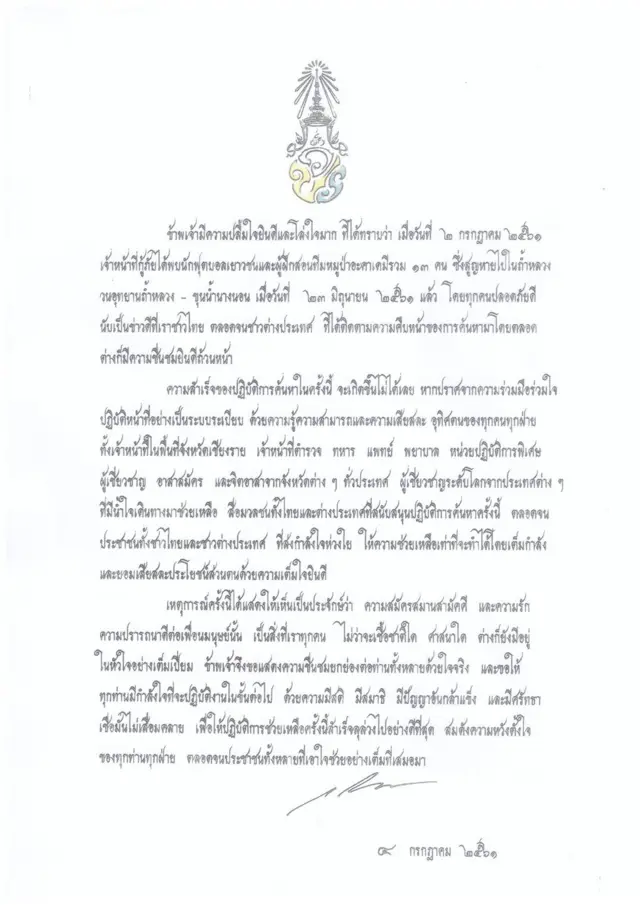 ข้าพเจ้ามีความปลื้มใจยินดีและโล่งใจมาก ที่ได้ทราบว่า เมื่อวันที่ ๒ กรกฎาคม ๒๕๖๑
เจ้าหน้าที่กู้ภัยได้พบนักฟุตบอลเยาวชนและผู้ฝึกสอนทีมหมูป่าอะคาเดมีรวม ๑๓ คน ซึ่งสูญหายไปในถ้ำหลวง
วนอุทยานถ้ำหลวง - ขุนน้ำนางนอน เมื่อวันที่ ๒๓ มิถุนายน ๒๕๖๑ แล้ว โดยทุกคนปลอดภัยดี
นับเป็นข่าวดีที่เราชาวไทย ตลอดจนชาวต่างประเทศ ที่ได้ติดตามความคืบหน้าของการค้นหามาโดยตลอด
ต่างก็มีความชื่นชมยินดีถ้วนหน้า
ความสำเร็จของปฏิบัติการค้นหาในครั้งนี้ จะเกิดขึ้นไม่ได้เลย หากปราศจากความร่วมมือร่วมใจ
ปฏิบัติหน้าที่อย่างเป็นระบบระเบียบ ด้วยความรู้ความสามารถและความเสียสละ อุทิศตนของทุกคนทุกฝ่าย
ทั้งเจ้าหน้าที่ในพื้นที่จังหวัดเชียงราย เจ้าหน้าที่ตำรวจ ทหาร แพทย์ พยาบาล หน่วยปฏิบัติการพิเศษ
ผู้เชี่ยวชาญ อาสาสมัคร และจิตอาสาจากจังหวัดต่าง ๆ ทั่วประเทศ ผู้เชี่ยวชาญระดับโลกจากประเทศต่าง ๆ
ที่มีน้ำใจเดินทางมาช่วยเหลือ สื่อมวลชนทั้งไทยและต่างประเทศที่สนับสนุนปฏิบัติการค้นหาครั้งนี้ ตลอดจน
ประชาชนทั้งชาวไทยและชาวต่างประเทศ ที่ส่งกำลังใจห่วงใย ให้ความช่วยเหลือเท่าที่จะทำได้โดยเต็มกำลัง
และยอมเสียสละประโยชน์ส่วนตนด้วยความเต็มใจยินดี
เหตุการณ์ครั้งนี้ได้แสดงให้เห็นเป็นประจักษ์ว่า ความสมัครสมานสามัคคี และความรัก
ความปรารถนาดีต่อเพื่อนมนุษย์นั้น เป็นสิ่งที่เราทุกคน ไม่ว่าจะเชื้อชาติใด ศาสนาใด ต่างก็ยังมีอยู่
ในหัวใจอย่างเต็มเปี่ยม ข้าพเจ้าจึงขอแสดงความชื่นชมยกย่องต่อท่านทั้งหลายด้วยใจจริง และขอให้
ทุกท่านมีกำลังใจที่จะปฏิบัติงานในขั้นต่อไป ด้วยความมีสติ มีสมาธิ มีปัญญาอันกล้าแข็ง และมีศรัทธา
เชื่อมั่นไม่เสื่อมคลาย เพื่อให้ปฏิบัติการช่วยเหลือครั้งนี้สำเร็จลุล่วงไปอย่างดีที่สุด สมดังความหวังตั้งใจ
ของทุกท่านทุกฝ่าย ตลอดจนประชาชนทั้งหลายที่เอาใจช่วยอย่างเต็มที่เสมอมา
๔ กรกฎาคม ๒๕๖๑